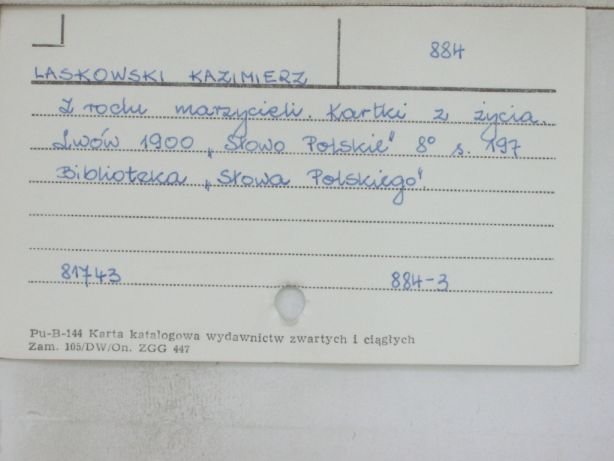 884
LASKOWSKI KAZIMIERZ
Z rodu marzycieli. Kartki z życia.
Lwów 1900 „Słowo Polskie" 8° s. 197
Biblioteka „Słowa Polskiego".
81743 884-3
Pu-B-144 Karta katalogowa wydawnictw zwartych i ciągłych
Zam. 105/DW/On. ZGG 447